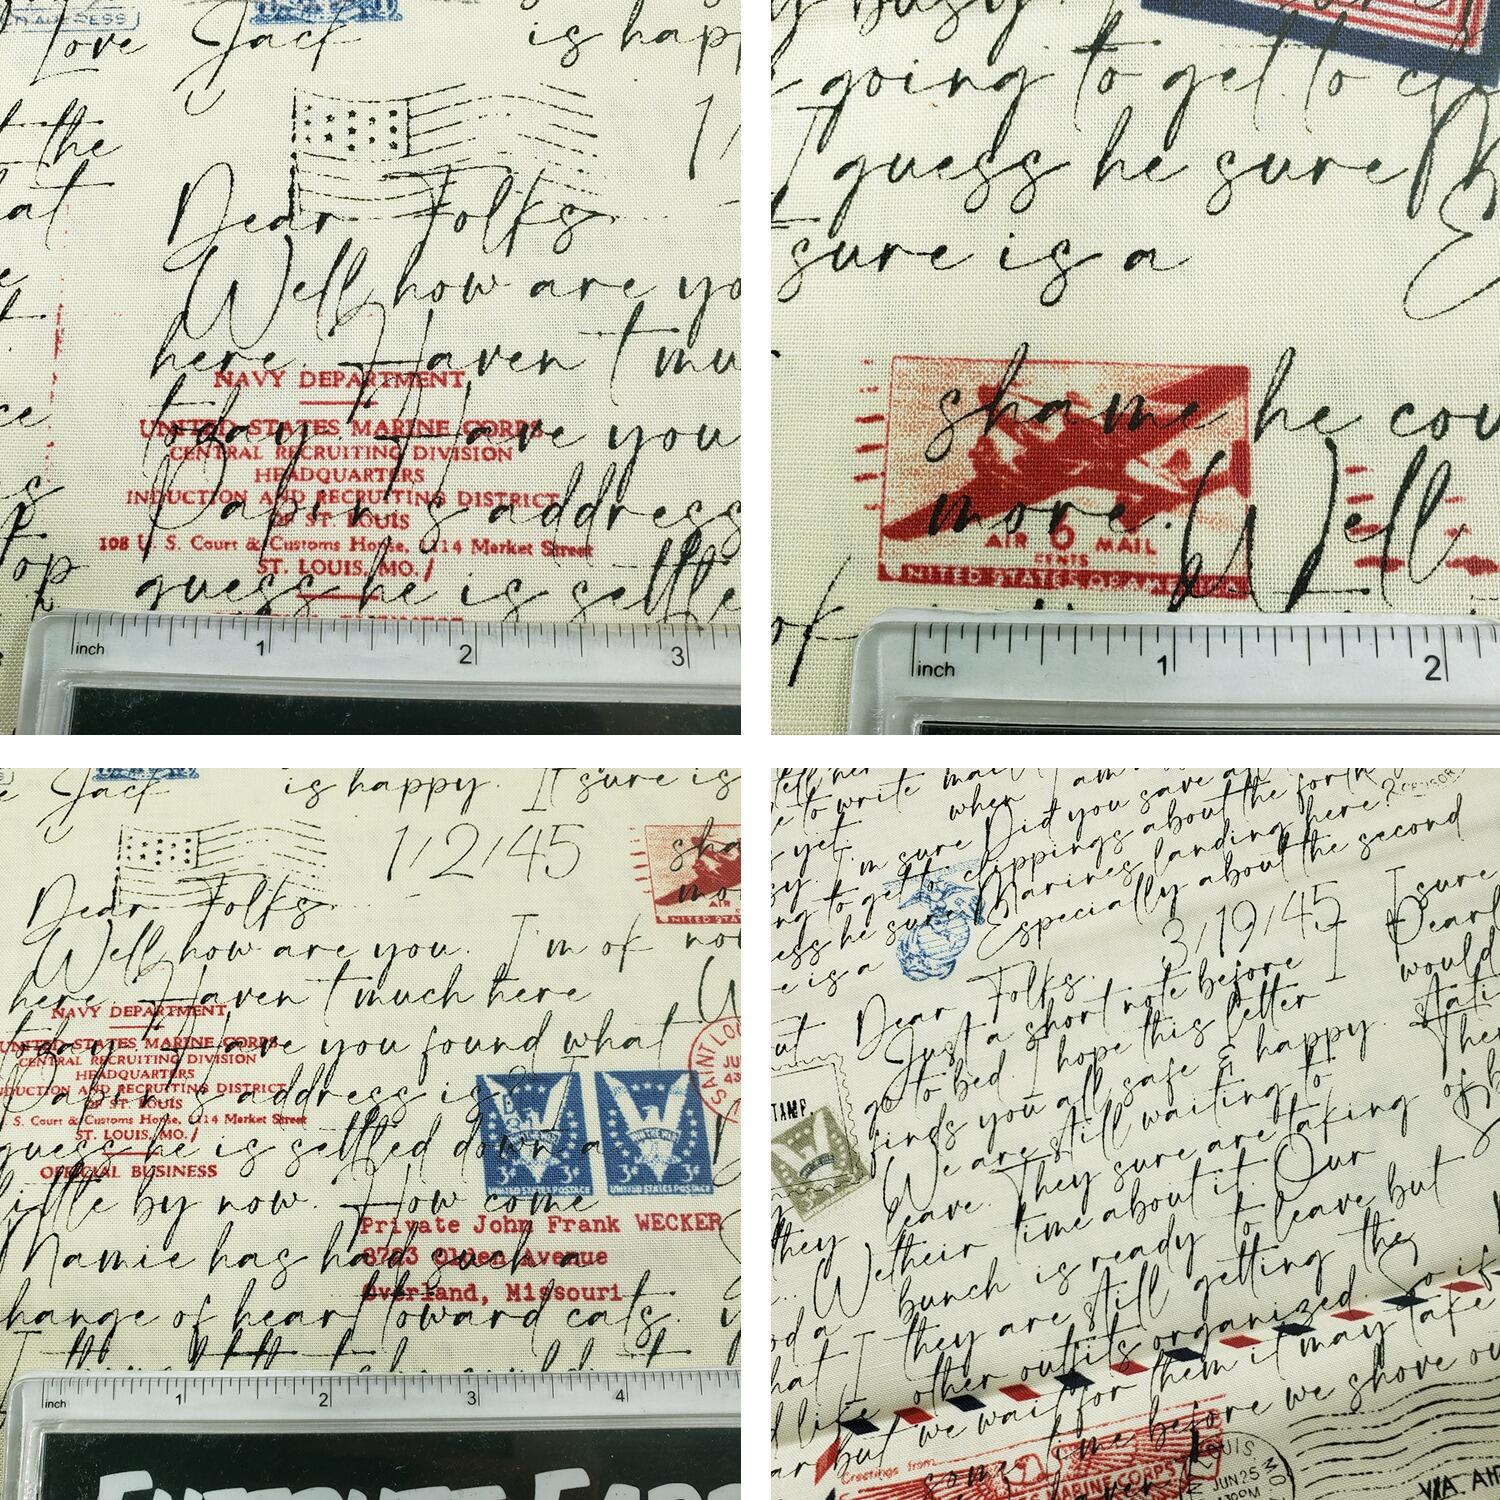 Love Jack
is happ
t the
1/
at
Dear Folks
Well how are yo
here. Haven't mu
NAVY DEPARTMENT
today. Have you
UNITED STATES MARINE CORPS
CENTRAL RECRUITING DIVISION
HEADQUARTERS
INDUCTION AND RECRUITING DISTRICT
address
OF ST. LOUIS
108 U. S. Court & Customs House, 1114 Market Street
ST. LOUIS, MO.
guess he is settle
inch 1 2 3
y busy.
going to get to
I guess he sure
sure is a
shame he cou
more. Well
AIR 6 MAIL
CENTS
UNITED STATES OF AMERICA
inch 1 2
Jack
is happy. It sure is
1/2/45
sha
mo
AIR
UNITED STA
Dear Folks
Well how are you. I'm ok now
here. Haven't much here
NAVY DEPARTMENT
today. Have you found what
UNITED STATES MARINE CORPS
CENTRAL RECRUITING DIVISION
HEADQUARTERS
INDUCTION AND RECRUITING DISTRICT
address is
OF ST. LOUIS
S. Court & Customs House, 1114 Market Street
ST. LOUIS, MO.
SAINT LO
JU
43
guess he is settled down a
OFFICIAL BUSINESS
3¢ 3¢
UNITED STATES POSTAGE
3¢ 3¢
UNITED STATES POSTAGE
little by now. How come
Private John Frank WECKER
Mamie has had such a
Olden Avenue
Overland, Missouri
change of heart toward cats.
inch 1 2 3 4
to write mail
when I am
yet
I'm sure Did you save
sy.
ng to get to clippings about the forth
ess he sure Marines landing here?
e is a
Especially about the second
3/19/45
I sure
Dear Folks.
Just a short note before I
would
go to bed. I hope this letter
finds you all safe & happy.
TAMP.
We are still waiting to
leave. They sure are taking
of
they
their time about it. Our
bunch is ready to leave but
they are still getting the
hat I
other outfits organized. So if
d like
but we wait for them it may take
Greetings from
some time before we shove ou
MARINE CORPS
LOUIS
MO
JUN 25
430PM
VIA AIR